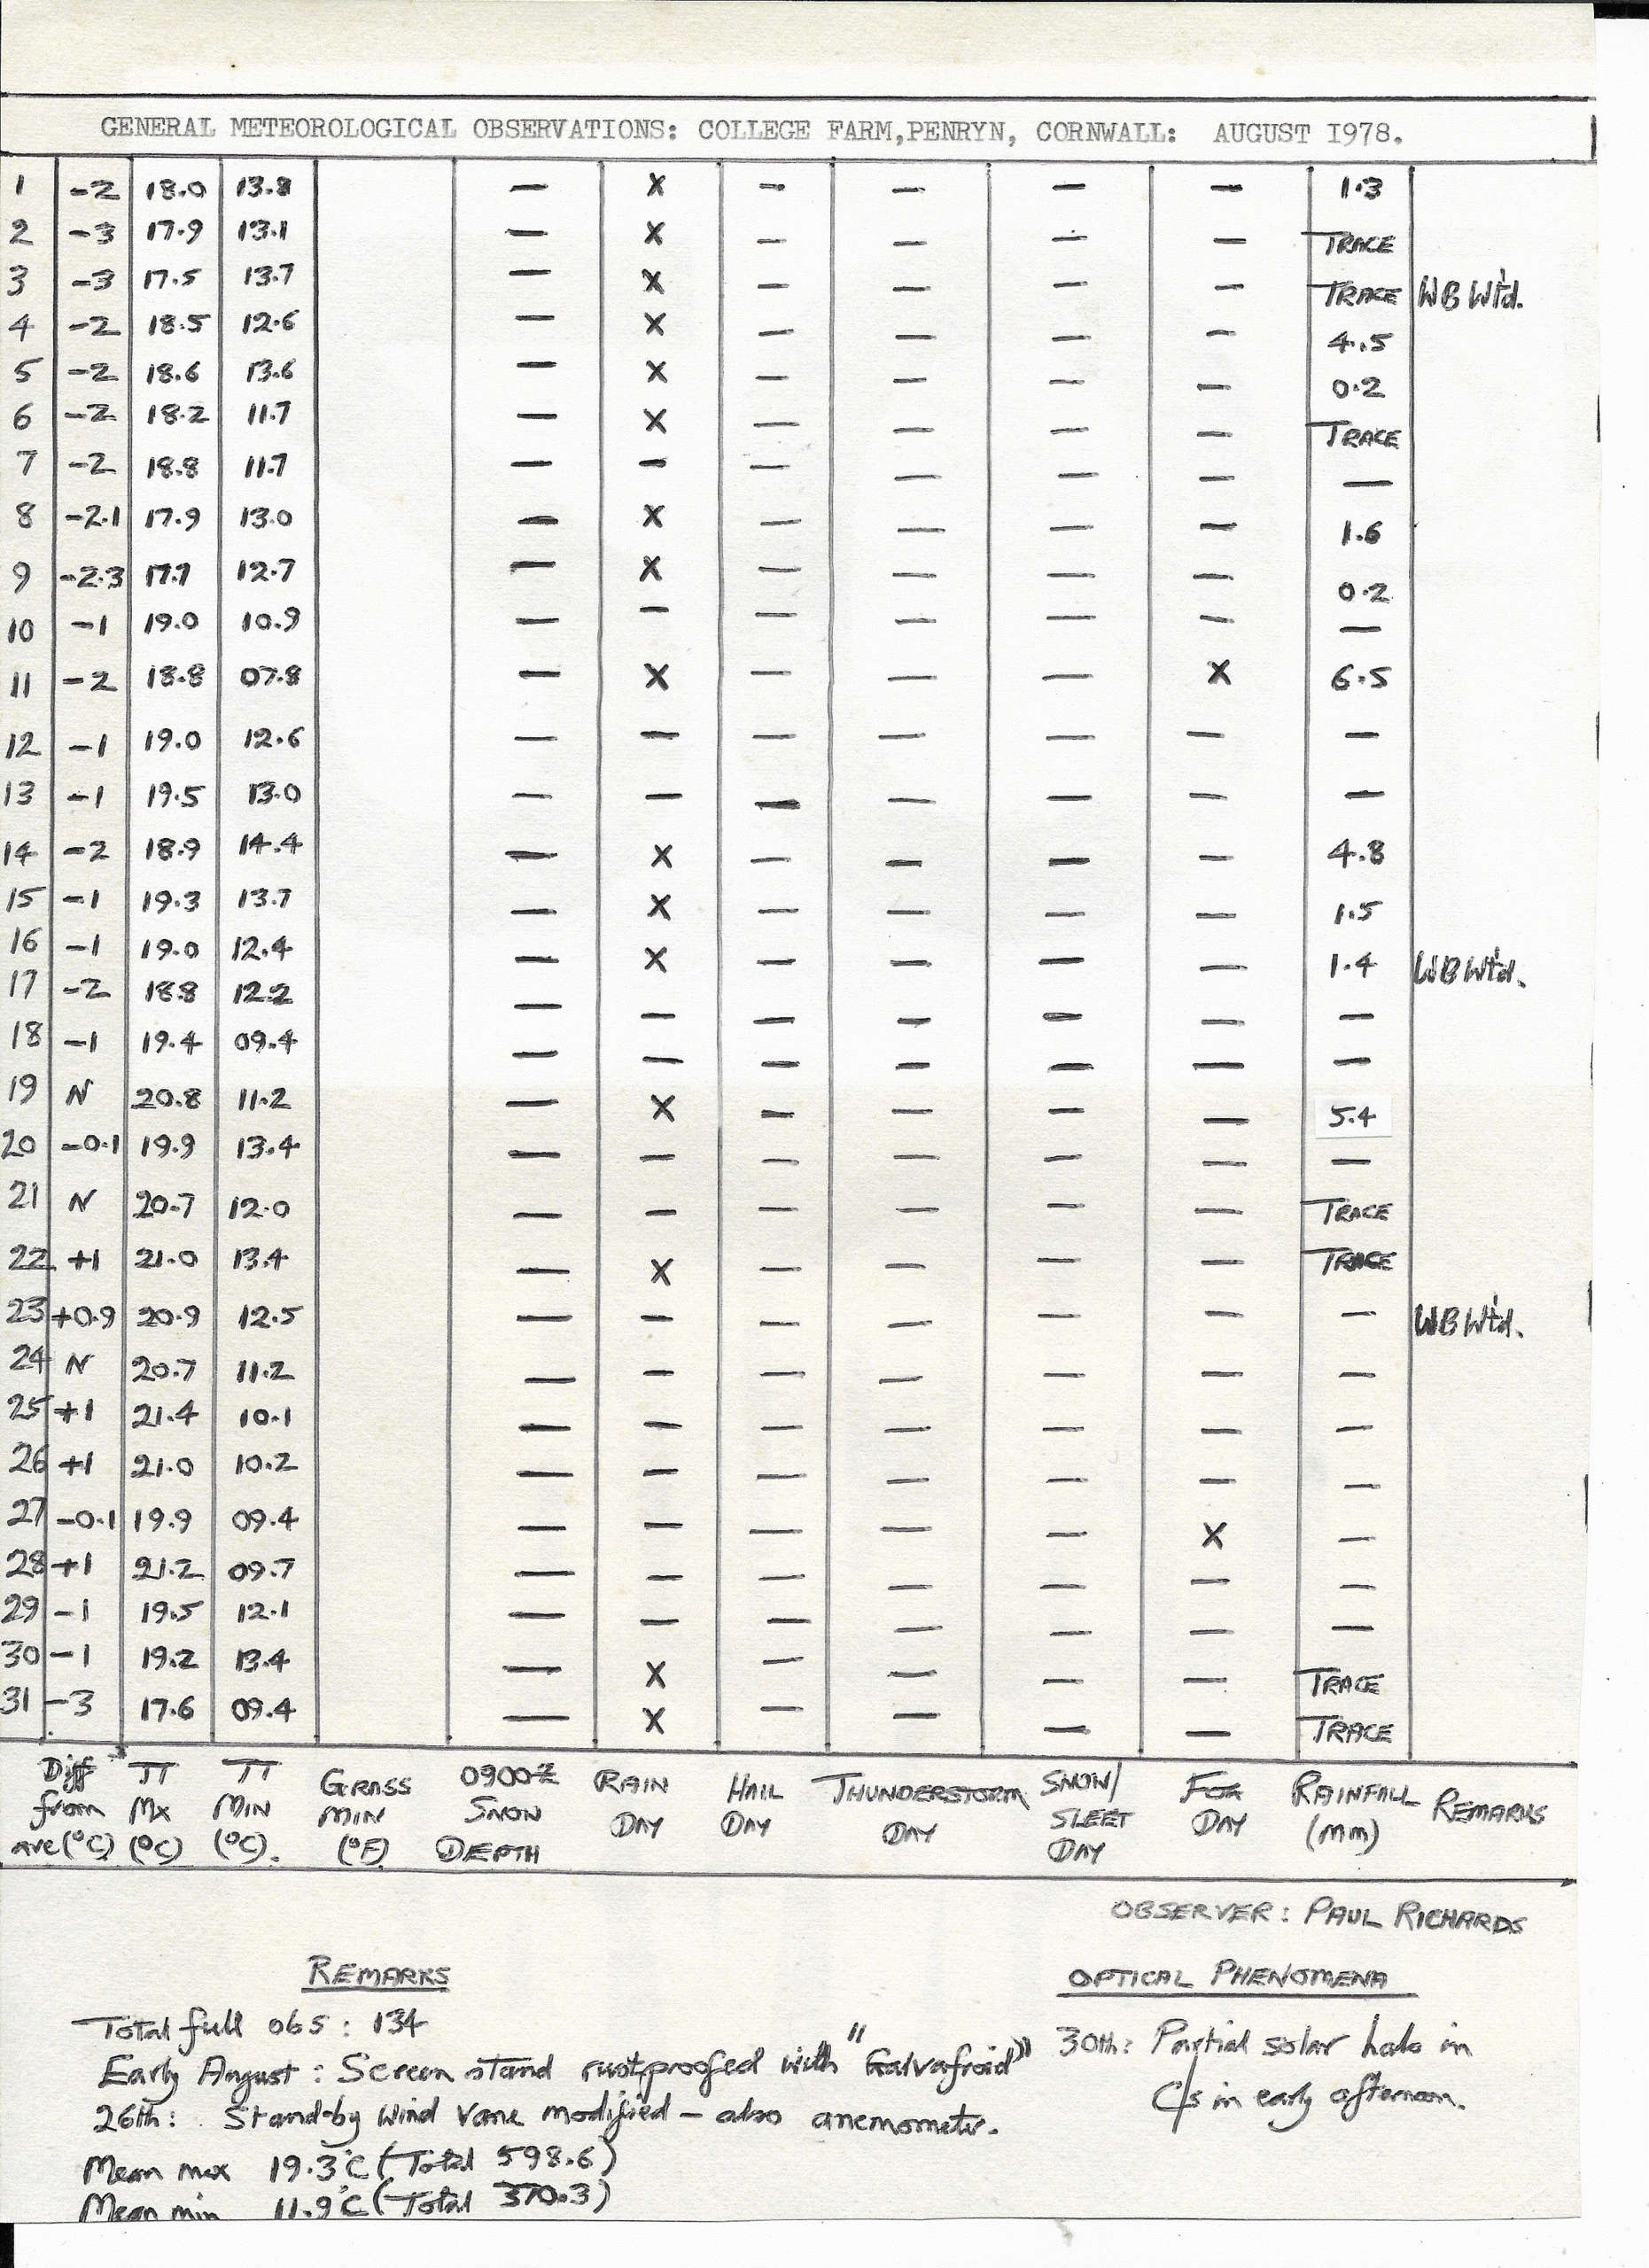 GENERAL METEOROLOGICAL OBSERVATIONS: COLLEGE FARM,PENRYN, CORNWALL: AUGUST I978.
1 -2 18.0 13.8 — X — — — — 1.3
2 -3 17.9 13.1 — X — — — — TRACE
3 -3 17.5 13.7 — X — — — — TRACE WB Wtd.
4 -2 18.5 12.6 — X — — — — 4.5
5 -2 18.6 13.6 — X — — — — 0.2
6 -2 18.2 11.7 — X — — — — TRACE
7 -2 18.8 11.7 — — — — — — —
8 -2.1 17.9 13.0 — X — — — — 1.6
9 -2.3 17.7 12.7 — X — — — — 0.2
10 -1 19.0 10.9 — — — — — — —
11 -2 18.8 07.8 — X — — — X 6.5
12 -1 19.0 12.6 — — — — — — —
13 -1 19.5 13.0 — — — — — — —
14 -2 18.9 14.4 — X — — — — 4.8
15 -1 19.3 13.7 — X — — — — 1.5
16 -1 19.0 12.4 — X — — — — 1.4 WB Wtd.
17 -2 18.8 12.2 — — — — — — —
18 -1 19.4 09.4 — — — — — — —
19 N 20.8 11.2 — X — — — — 5.4
20 -0.1 19.9 13.4 — — — — — — —
21 N 20.7 12.0 — — — — — — TRACE
22 +1 21.0 13.4 — X — — — — TRACE
23 +0.9 20.9 12.5 — — — — — — — WB Wtd.
24 N 20.7 11.2 — — — — — — —
25 +1 21.4 10.1 — — — — — — —
26 +1 21.0 10.2 — — — — — — —
27 -0.1 19.9 09.4 — — — — — X —
28 +1 21.2 09.7 — — — — — — —
29 -1 19.5 12.1 — — — — — — —
30 -1 19.2 13.4 — X — — — — TRACE
31 -3 17.6 09.4 — X — — — — TRACE
Diff TT TT GRASS 0900Z RAIN HAIL THUNDERSTORM SNOW/ FOG RAINFALL REMARKS
from Mx MIN MIN SNOW DAY DAY DAY SLEET DAY (mm)
ave(°C) (°C) (°C). (°F) DEPTH DAY
OBSERVER: PAUL RICHARDS
REMARKS
Total full obs: 134
Early August: Screen stand rustproofed with "Galvafroid"
26th: Stand-by wind vane modified – also anemometer.
Mean max 19.3°C (Total 598.6)
Mean min 11.9°C (Total 370.3)
OPTICAL PHENOMENA
30th: Partial solar halo in
Cs in early afternoon.